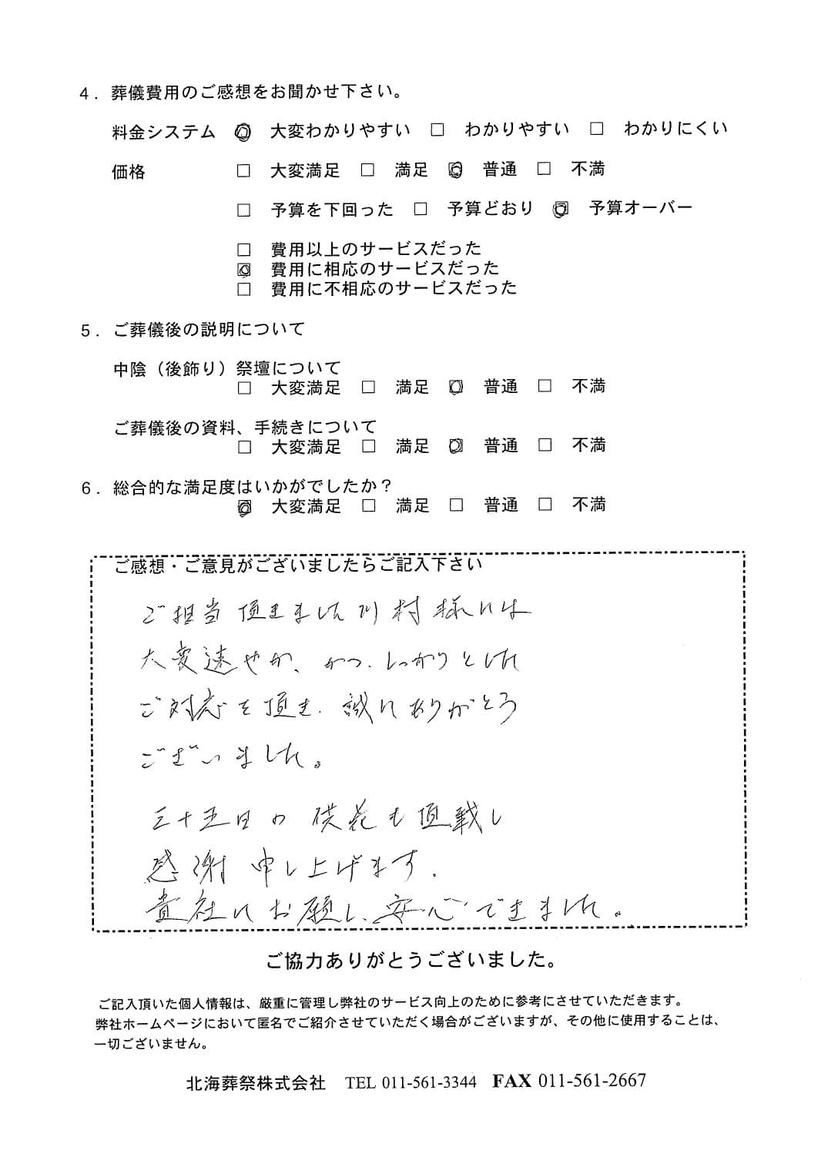 4．葬儀費用のご感想をお聞かせ下さい。
料金システム ☑ 大変わかりやすい □ わかりやすい □ わかりにくい
価格 □ 大変満足 □ 満足 ☑ 普通 □ 不満
□ 予算を下回った □ 予算どおり ☑ 予算オーバー
□ 費用以上のサービスだった
☑ 費用に相応のサービスだった
□ 費用に不相応のサービスだった
5．ご葬儀後の説明について
中陰（後飾り）祭壇について
□ 大変満足 □ 満足 ☑ 普通 □ 不満
ご葬儀後の資料、手続きについて
□ 大変満足 □ 満足 ☑ 普通 □ 不満
6．総合的な満足度はいかがでしたか？
☑ 大変満足 □ 満足 □ 普通 □ 不満
ご感想・ご意見がございましたらご記入下さい
ご担当頂きました川村様には
大変速やか、かつ、しっかりとした
ご対応を頂き、誠にありがとう
ございました。
三十五日の供花も頂戴し
感謝申し上げます。
貴社にお願いし、安心できました。
ご協力ありがとうございました。
ご記入頂いた個人情報は、厳重に管理し弊社のサービス向上のために参考にさせていただきます。
弊社ホームページにおいて匿名でご紹介させていただく場合がございますが、その他に使用することは、
一切ございません。
北海葬祭株式会社 TEL 011-561-3344 FAX 011-561-2667